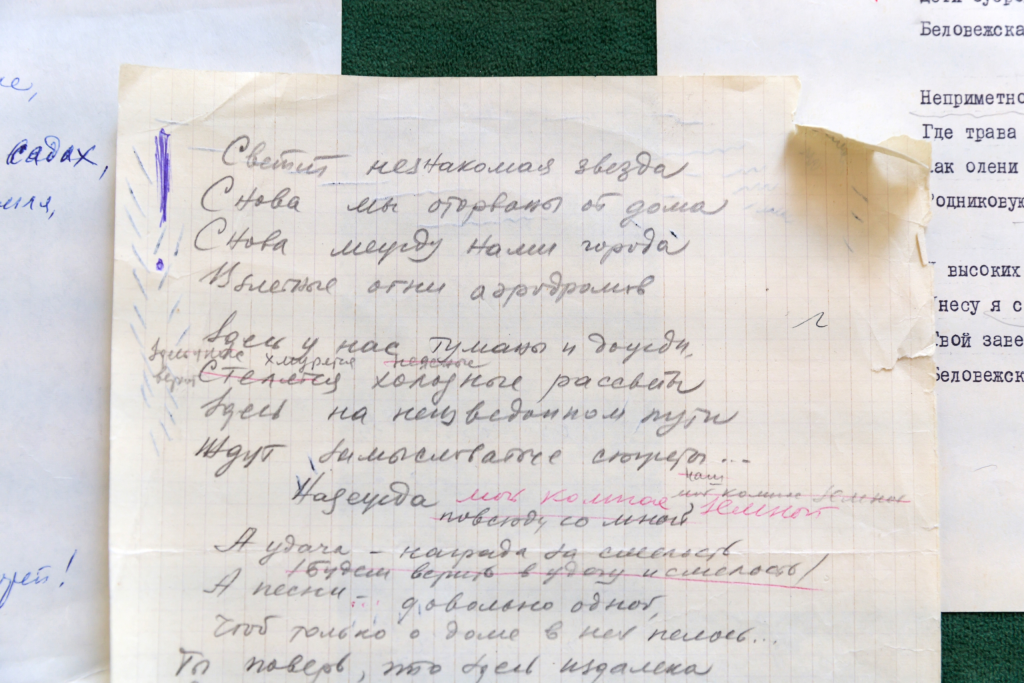 садах,
Светит незнакомая звезда
Снова мы оторваны от дома
Снова между нами города
Взлетные огни аэродромов
Здесь у нас туманы и дожди,
хмурятся неясные
Стелятся холодные рассветы
Здесь на неизведанном пути
Ждут замысловатые сюжеты...
наш
Надежда мой компас земной
повсюду со мной,
А удача – награда за смелость
(Будем верить в удачу и смелость)
А песни – довольно одной,
Чтоб только о доме в ней пелось...
Ты поверь, что здесь издалека
Беловежска
Неприметно
Где трава
как олени
Родниковую
У высоких
Унесу я с
Твой заве
Беловежск